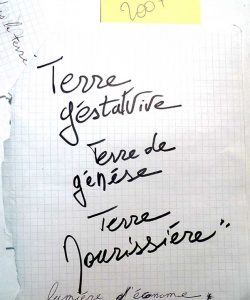 2007
Terre
géstative
Terre de
génése
Terre
Nourissière"
lumière d'économe *